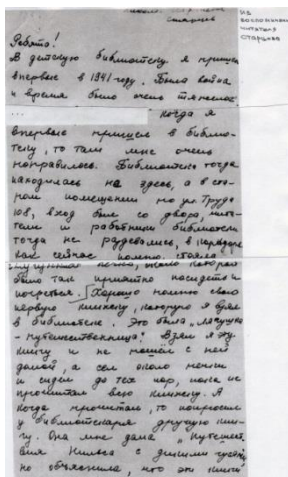 из
воспоминаний
читателя
Старцева
Старцев
Ребята!
В детскую библиотеку я пришел
впервые в 1941 году. Была война
и время было очень тяжелое
... когда я
впервые пришел в библио-
теку, то там мне очень
понравилось. Библиотека тогда
находилась не здесь, а в
ном помещении по ул. Труда
108, вход был со двора, чита-
тели и работники библиотеки
тогда не раздевались, в коридоре
как сейчас помню стояла
печка, около которой
было так приятно посидеть и
погреться. Хорошо помню свою
первую книжку, которую я взял
в библиотеке. Это была „Лягушка
-путешественница". Взял я эту
книгу и не пошёл с ней
домой, а сел около печки
и сидел до тех пор, пока не
прочитал всю книжку. А
когда прочитал, то попросил
у библиотекаря другую кни-
гу. Она мне дала „Путешест-
вия Нильса с дикими гусями",
но объяснила, что эти книги